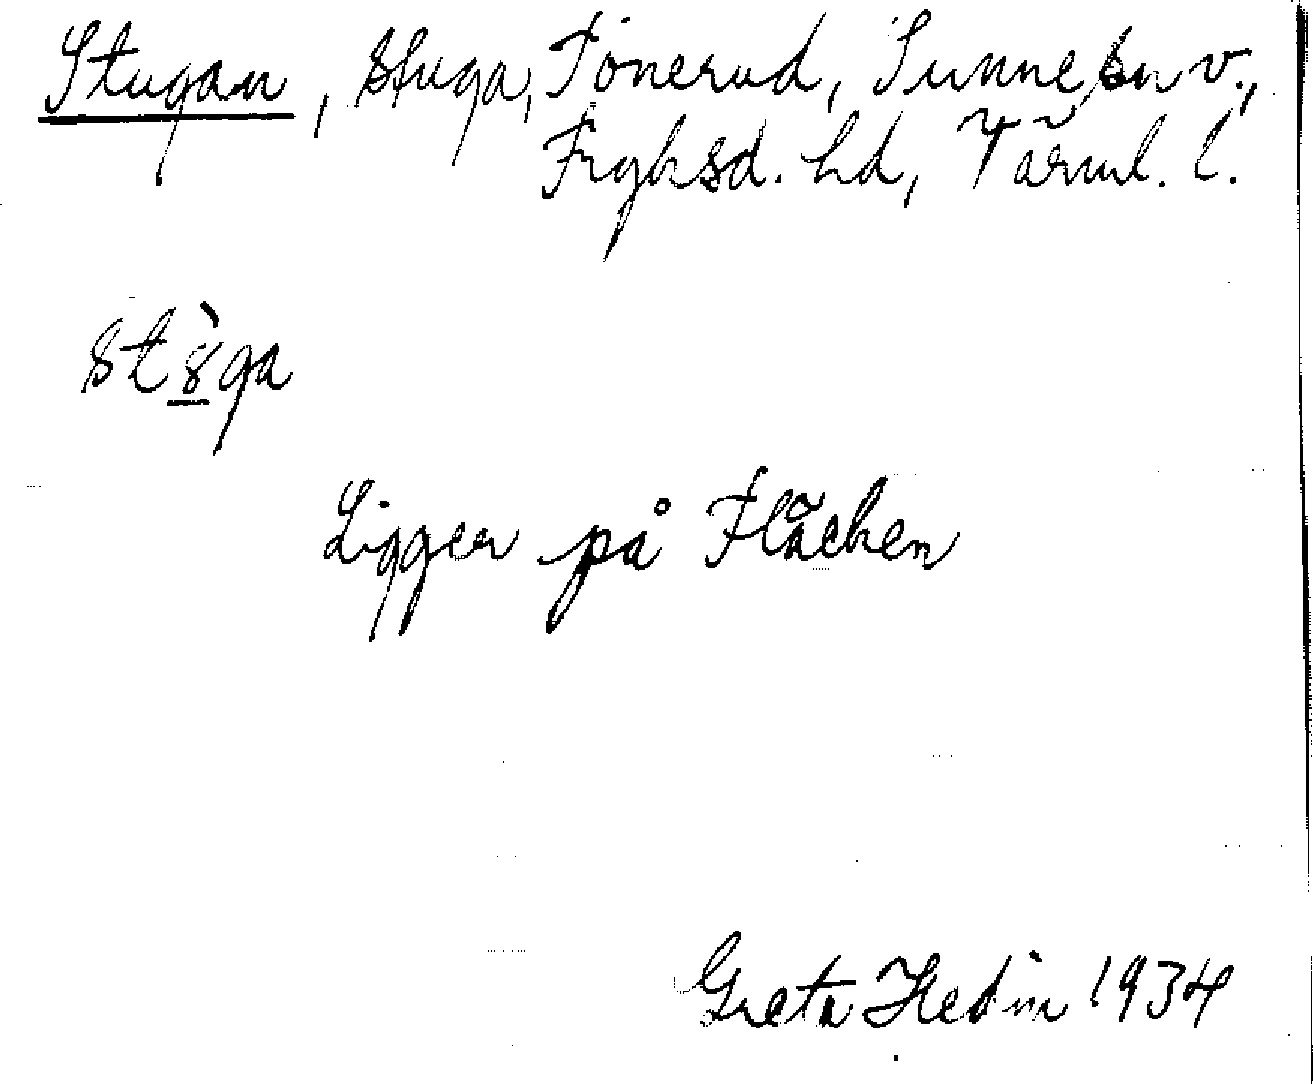 Stugan, stuga, Tönerud, Sunne sn v.,
Fryksd. hd, Värml. l.
st8̀ga
Ligger på Fläcken
Greta Hedin 1934